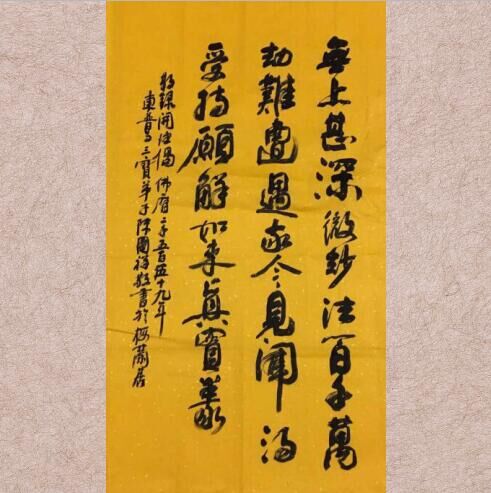 無上甚深微妙法百千萬
劫難遭遇我今見聞得
受持願解如來眞實義
敬録開法偈 佛曆二千五百五十九年
東魯三寶弟子陳國祥敬書於梅蘭居